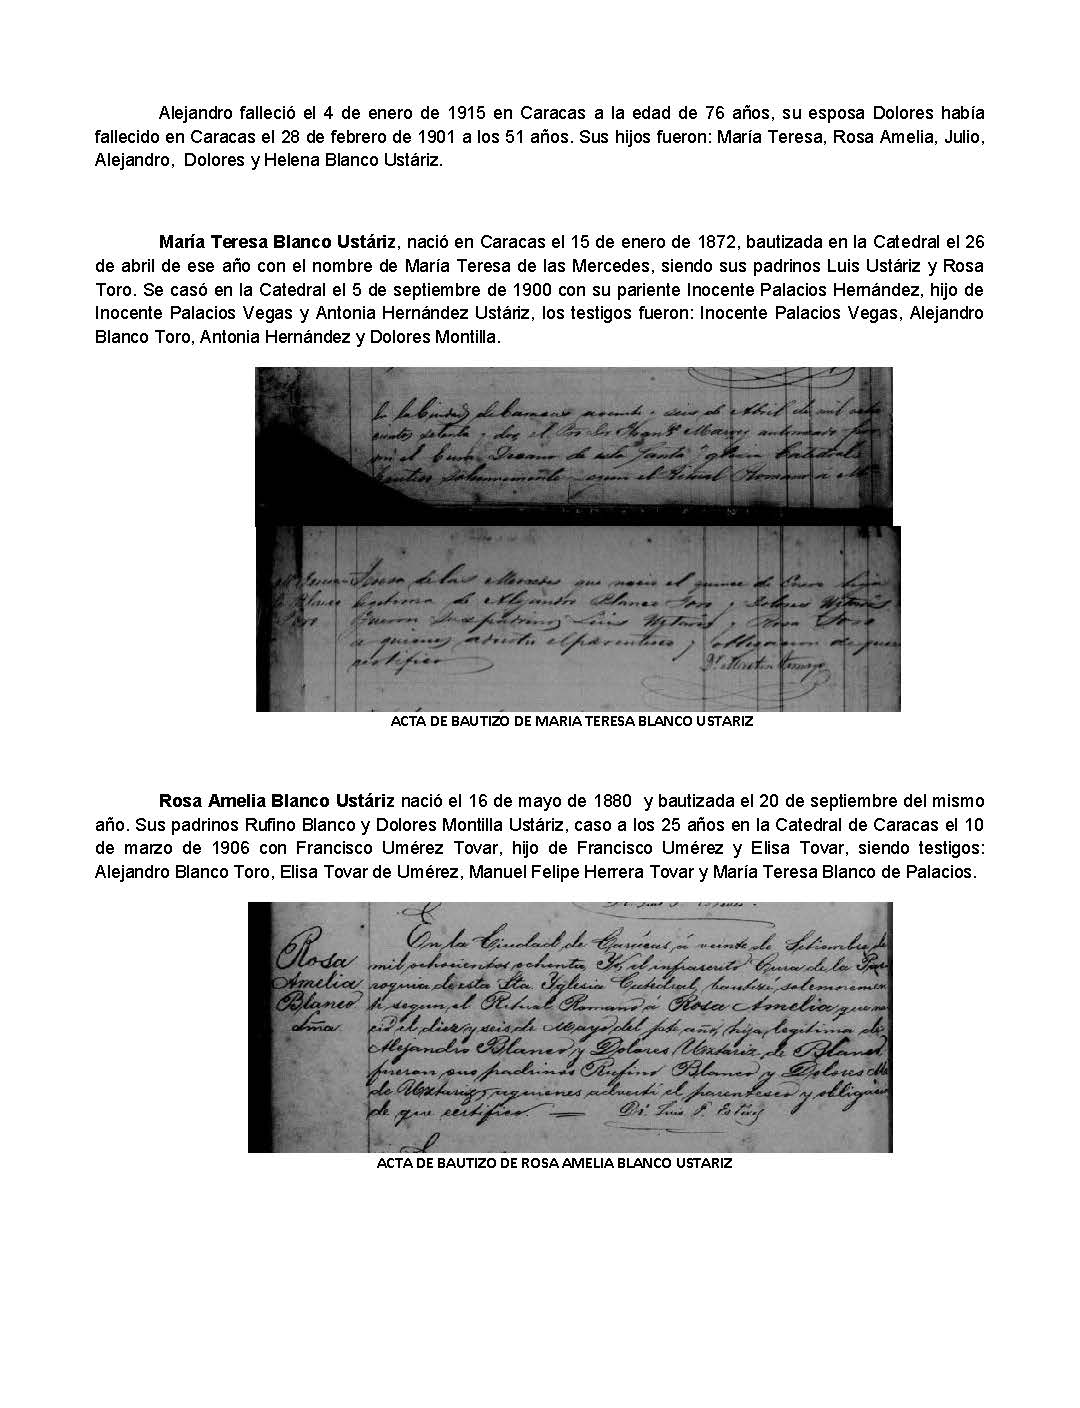 Alejandro falleció el 4 de enero de 1915 en Caracas a la edad de 76 años, su esposa Dolores había
fallecido en Caracas el 28 de febrero de 1901 a los 51 años. Sus hijos fueron: María Teresa, Rosa Amelia, Julio,
Alejandro, Dolores y Helena Blanco Ustáriz.
María Teresa Blanco Ustáriz, nació en Caracas el 15 de enero de 1872, bautizada en la Catedral el 26
de abril de ese año con el nombre de María Teresa de las Mercedes, siendo sus padrinos Luis Ustáriz y Rosa
Toro. Se casó en la Catedral el 5 de septiembre de 1900 con su pariente Inocente Palacios Hernández, hijo de
Inocente Palacios Vegas y Antonia Hernández Ustáriz, los testigos fueron: Inocente Palacios Vegas, Alejandro
Blanco Toro, Antonia Hernández y Dolores Montilla.
En la Ciudad de Caracas a veinte y seis de Abril de mil ocho
cientos setenta y dos el autorizado por
mi el Cura de esta Santa Catedral
solemnemente segun el Ritual Romano á Ma
Teresa de las Mercedes que nacio el quince de Enero hija
lejitima de Alejandro Blanco Toro y Dolores Uztariz
fueron sus padrinos Luis Uztariz y Rosa Toro
a quienes advertí el parentesco y obligacion de que
certifico
ACTA DE BAUTIZO DE MARIA TERESA BLANCO USTARIZ
Rosa Amelia Blanco Ustáriz nació el 16 de mayo de 1880 y bautizada el 20 de septiembre del mismo
año. Sus padrinos Rufino Blanco y Dolores Montilla Ustáriz, caso a los 25 años en la Catedral de Caracas el 10
de marzo de 1906 con Francisco Umérez Tovar, hijo de Francisco Umérez y Elisa Tovar, siendo testigos:
Alejandro Blanco Toro, Elisa Tovar de Umérez, Manuel Felipe Herrera Tovar y María Teresa Blanco de Palacios.
Rosa
Amelia
Blanco
En la Ciudad de Carácas, á veinte de Setiembre de
mil ochocientos ochenta, Yo, el infrascrito Cura de la Par
roquia de esta Sta Yglesia Catedral, bautisé solemnemen
te segun el Ritual Romano á Rosa Amelia que na
ció el diez y seis de Mayo del pte año, hija legítima de
Alejandro Blanco y Dolores Uztariz de Blanco
fueron sus padrinos Rufino Blanco y Dolores M.
de Uztariz, a quienes advertí el parentesco y obligacion
de que certifico. — Dr. Luis F. Estévez
ACTA DE BAUTIZO DE ROSA AMELIA BLANCO USTARIZ